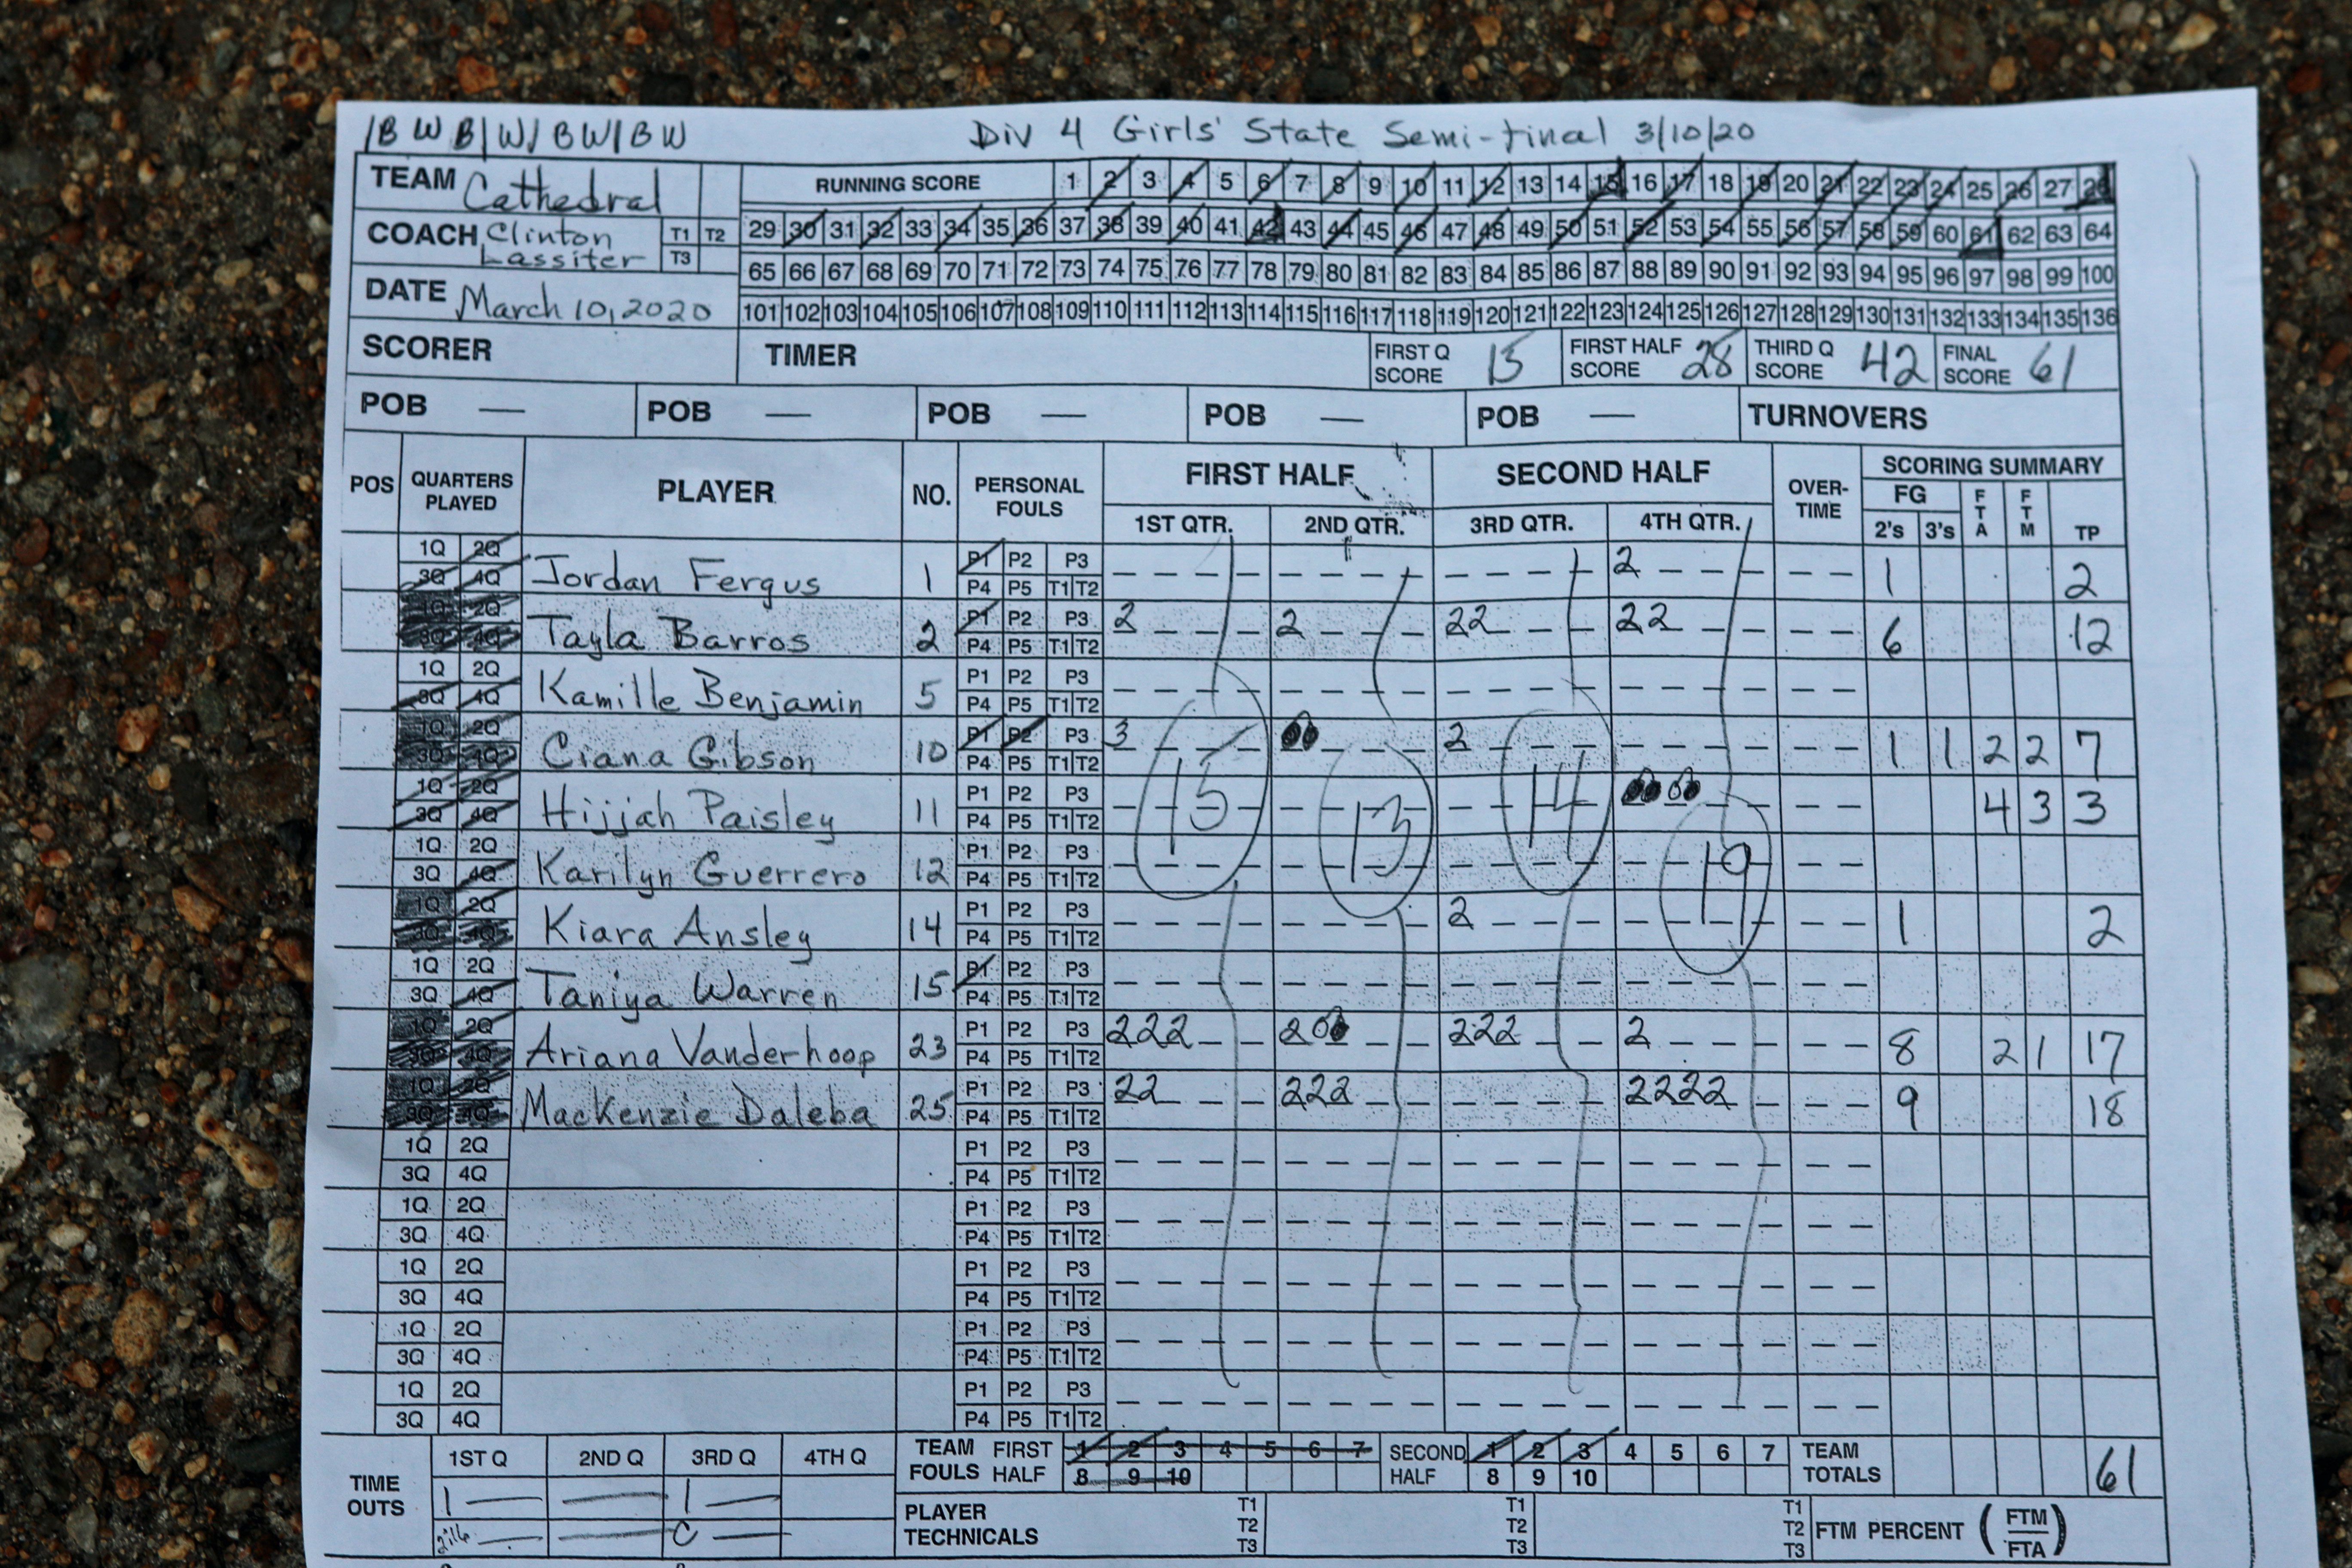 /B W B/W/ BW/BW Div 4 Girls' State Semi-final 3/10/20
TEAM Cathedral
COACH Clinton Lassiter T1 T2 T3
DATE March 10, 2020
RUNNING SCORE 1 2 3 4 5 6 7 8 9 10 11 12 13 14 15 16 17 18 19 20 21 22 23 24 25 26 27 28
29 30 31 32 33 34 35 36 37 38 39 40 41 42 43 44 45 46 47 48 49 50 51 52 53 54 55 56 57 58 59 60 61 62 63 64
65 66 67 68 69 70 71 72 73 74 75 76 77 78 79 80 81 82 83 84 85 86 87 88 89 90 91 92 93 94 95 96 97 98 99 100
101 102 103 104 105 106 107 108 109 110 111 112 113 114 115 116 117 118 119 120 121 122 123 124 125 126 127 128 129 130 131 132 133 134 135 136
SCORER TIMER FIRST Q SCORE 15 FIRST HALF SCORE 28 THIRD Q SCORE 42 FINAL SCORE 61
POB — POB — POB — POB — POB — TURNOVERS
POS QUARTERS PLAYED PLAYER NO. PERSONAL FOULS FIRST HALF SECOND HALF OVER-TIME SCORING SUMMARY
1ST QTR. 2ND QTR. 3RD QTR. 4TH QTR. FG 2's 3's FTA FTM TP
1Q 2Q 3Q 4Q Jordan Fergus 1 P1 P2 P3 P4 P5 T1 T2 2 1 2
1Q 2Q 3Q 4Q Tayla Barros 2 P1 P2 P3 P4 P5 T1 T2 2 2 22 22 6 12
1Q 2Q 3Q 4Q Kamille Benjamin 5 P1 P2 P3 P4 P5 T1 T2
1Q 2Q 3Q 4Q Ciana Gibson 10 P1 P2 P3 P4 P5 T1 T2 3 2 1 1 2 2 7
1Q 2Q 3Q 4Q Hijjah Paisley 11 P1 P2 P3 P4 P5 T1 T2 15 13 14 4 3 3
1Q 2Q 3Q 4Q Karilyn Guerrero 12 P1 P2 P3 P4 P5 T1 T2 19
1Q 2Q 3Q 4Q Kiara Ansley 14 P1 P2 P3 P4 P5 T1 T2 2 1 2
1Q 2Q 3Q 4Q Taniya Warren 15 P1 P2 P3 P4 P5 T1 T2
1Q 2Q 3Q 4Q Ariana Vanderhoop 23 P1 P2 P3 P4 P5 T1 T2 222 2 222 2 8 2 1 17
1Q 2Q 3Q 4Q Mackenzie Daleba 25 P1 P2 P3 P4 P5 T1 T2 22 222 2222 9 18
1Q 2Q 3Q 4Q P1 P2 P3 P4 P5 T1 T2
1Q 2Q 3Q 4Q P1 P2 P3 P4 P5 T1 T2
1Q 2Q 3Q 4Q P1 P2 P3 P4 P5 T1 T2
1Q 2Q 3Q 4Q P1 P2 P3 P4 P5 T1 T2
1Q 2Q 3Q 4Q P1 P2 P3 P4 P5 T1 T2
TIME OUTS 1ST Q 2ND Q 3RD Q 4TH Q
TEAM FOULS FIRST HALF 1 2 3 4 5 6 7 8 9 10 SECOND HALF 1 2 3 4 5 6 7 8 9 10 TEAM TOTALS 61
PLAYER TECHNICALS T1 T2 T3 T1 T2 T3 T1 T2 T3 FTM PERCENT (FTM/FTA)